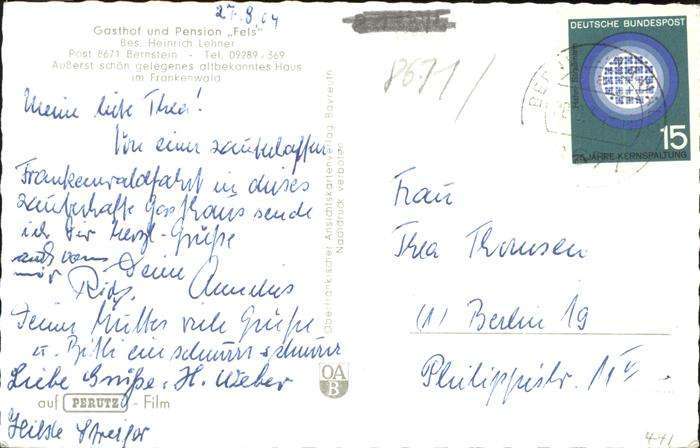 27.8.64
Gasthof und Pension „Fels"
Bes. Heinrich Lehner
Post 8671 Bernstein - Tel. 09289/369
Äußerst schön gelegenes altbekanntes Haus
im Frankenwald
8671/
DEUTSCHE BUNDESPOST
Hahn-Strassmann
15
25 JAHRE KERNSPALTUNG
Meine liebe Thea!
Von einer zauberhaften
Frankenwaldfahrt in dieses
zauberhafte Gasthaus sende
ich Dir herzl. Grüße
auch von Deine
Annelies
Deiner Mutter viele Grüße
u. Bitti ein schnurr schnurr
Liebe Grüße, H. Weber
auf PERUTZ - Film
Oberfränkischer Ansichtskartenverlag Bayreuth
Nachdruck verboten
OA
B
Frau
Thea Thomsen
(1) Berlin 19
Philippistr. 11